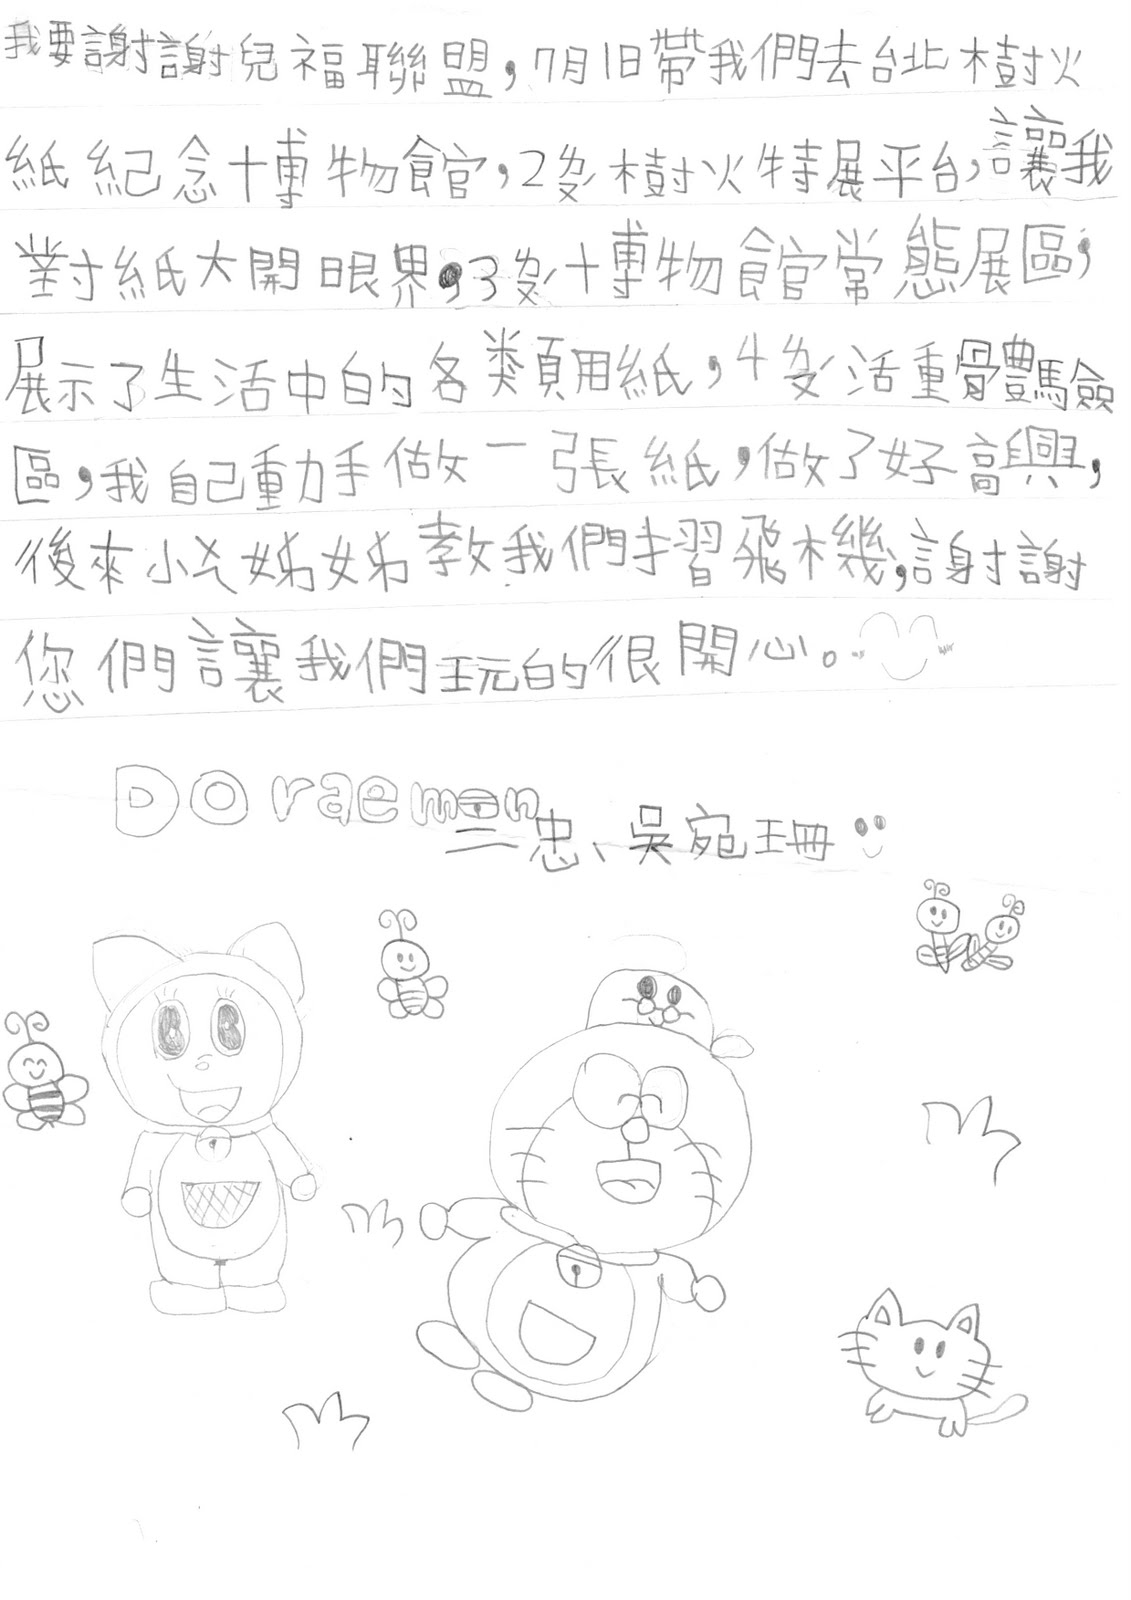 我要謝謝兒福聯盟，7月1日帶我們去台北樹火
紙紀念博物館，2ㄌㄡˊ樹火特展平台，讓我
對紙大開眼界，3ㄌㄡˊ博物館常態展區，
展示了生活中的各類用紙，4ㄌㄡˊ活重體驗
區，我自己動手做一張紙，做了好高興，
後來小姊姊教我們摺飛機，謝謝
您們讓我們玩的很開心。
Doraemon
三忠、吳宛珊